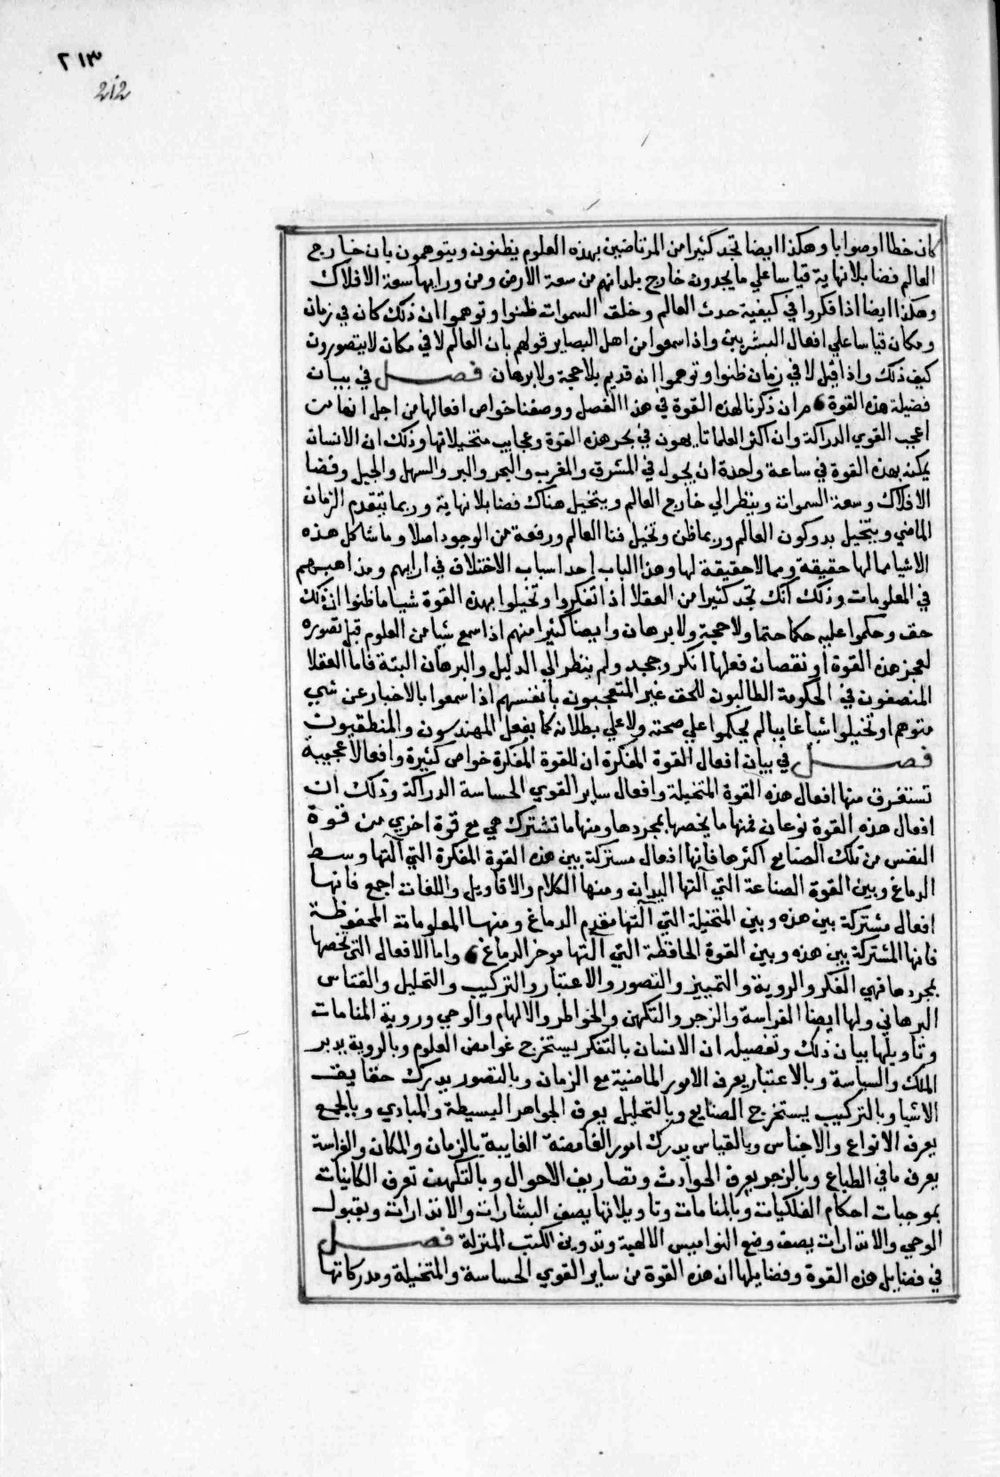 ٢١٣
212
كان خطا اوصوابا وهكذا ايضا تجد كثيرا من المرتاضين بهذه العلوم يظنون ويتوهمون بان خارج
العالم فضا بلانهاية قياسا علي مايجدون خارج بلدانهم من سعة الارض ومن ورايها سعة الافلاك
وهكذا ايضا اذا فكروا في كيفية حدث العالم وخلق السموات ظنوا وتوهموا ان ذلك كان في زمان
ومكان قياسا علي افعال البشريين واذا سمعوا من اهل البصاير قولهم بان العالم لا في مكان لايتصورون
كيف ذلك واذا قيل لا في زمان ظنوا وتوهموا انه قديم بلاحجة ولابرهان فصل في بيان
فضيلة هذه القوة من ان ذكرنا لهذه القوة في هذا الفصل ووصفنا خواص افعالها من اجل انها من
اعجب القوي الدراكة وان اكثر العلما تايهون في بحر هذه القوة وعجايب متخيلاتها وذلك ان الانسان
يمكنه بهذه القوة في ساعة واحدة ان يجول في المشرق والمغرب والبحر والبر والسهل والجبل وفضا
الافلاك وسعة السموات وينظر الي خارج العالم ويتخيل هناك فضا بلانهاية وربما يتقدم الزمان
الماضي ويتخيل بدو كون العالم وربما ظن وتخيل فنا العالم ورفعه من الوجود اصلا وما شاكل هذه
الاشيا مما لها حقيقة ومما لاحقيقة لها وهذا الباب احد اسباب الاختلاف في ارايهم ومذاهبهم
في المعلومات وذلك انك تجد كثيرا من العقلا اذا تفكروا وتخيلوا بهذه القوة شيا ما ظنوا ان ذلك
حق وحكموا عليه حكما حتما ولاحجة ولابرهان وايضا كثيرا منهم اذا سمع شيا من العلوم قبل تصوره
لعجز هذه القوة او نقصان فعلها انكر وجحد ولم ينظر الي الدليل والبرهان البتة فاما العقلا
المنصفون في الحكومة الطالبون للحق غير المتعجبون بانفسهم اذا سمعوا بالاخبار عن شي
متوهم او تخيلوا شيا غايبا لم يحكموا علي صحته ولاعلي بطلانه كما يفعل المهندسون والمنطقيون
فصل في بيان افعال القوة المفكرة ان للقوة المفكرة خواص كثيرة وافعالا عجيبة
تستغرق منها افعال هذه القوة المتخيلة وافعال ساير القوي الحساسة الدراكة وذلك ان
افعال هذه القوة نوعان فمنها مايخصها بمجردها ومنها ما تشترك هي مع قوة اخري من قوة
النفس من تلك الصنايع اكثرها فانها افعال مشتركة بين هذه القوة المفكرة التي آلتها وسط
الدماغ وبين القوة الصناعة التي آلتها اليدان ومنها الكلام والاقاويل واللغات اجمع فانها
افعال مشتركة بين هذه وبين المتخيلة التي آلتها مقدم الدماغ ومنها المعلومات المحفوظة
فانها المشتركة بين هذه وبين القوة الحافظة التي آلتها موخر الدماغ واما الافعال التي تخصها
بمجردها فهي الفكر والروية والتمييز والتصور والاعتبار والتركيب والتحليل والقياس
البرهاني ولها ايضا الفراسة والزجر والتكهن والخواطر والالهام والوحي وروية المنامات
وتاويلها بيان ذلك وتفصيله ان الانسان بالتفكر يستخرج غوامض العلوم وبالروية يدبر
الملك والسياسة وبالاعتبار يعرف الامور الماضية مع الزمان وبالتصور يدرك حقايق
الاشيا وبالتركيب يستخرج الصنايع وبالتحليل يعرف الجواهر البسيطة والمبادي وبالجمع
يعرف الانواع والاجناس وبالقياس يدرك امور الغامضة الغايبة بالزمان والمكان والفراسة
يعرف مافي الطباع وبالزجر يعرف الحوادث وتصاريف الاحوال وبالتكهن تعرف الكاينات
بموجبات احكام الفلكيات وبالمنامات وتاويلاتها يصف البشارات والانذارات وبقبول
الوحي والانذارات يصف وضع النواميس الالهية وتدوين الكتب المنزلة فصل
في فضايل هذه القوة وفضايلها ان هذه القوة من ساير القوي الحساسة والمتخيلة ومدركاتها